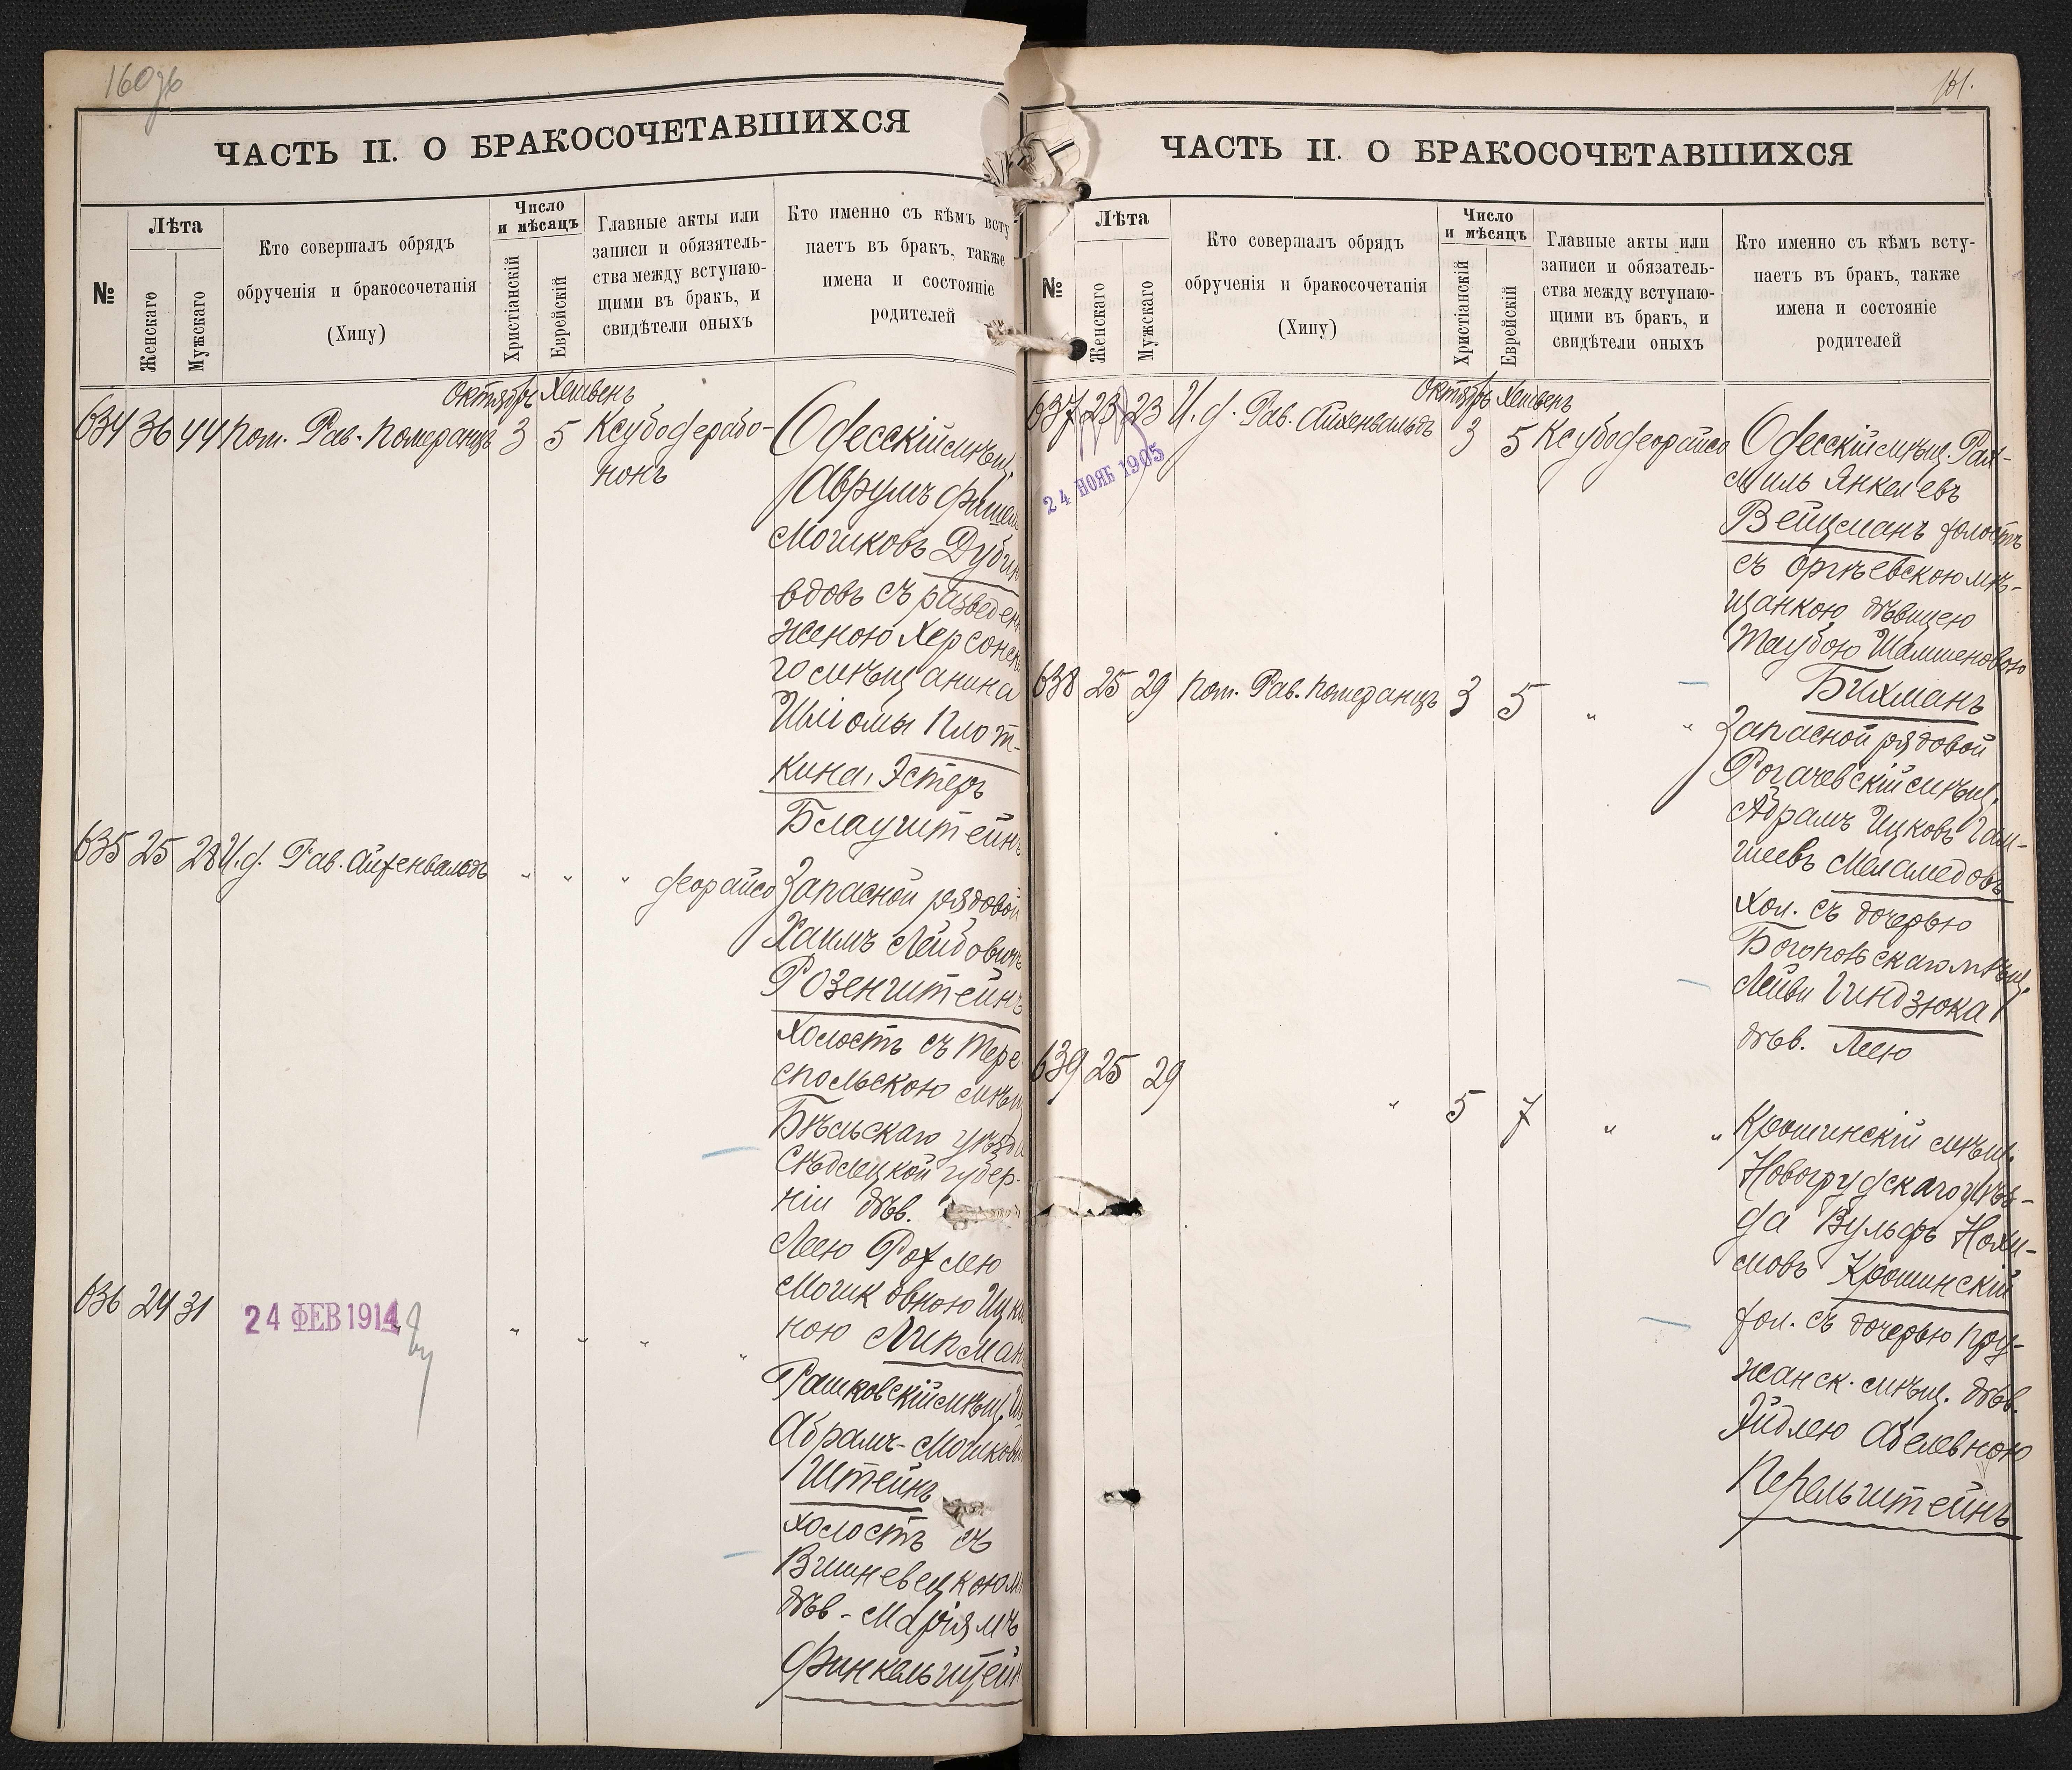 160об
ЧАСТЬ II. О БРАКОСОЧЕТАВШИХСЯ
№
Лѣта
Женскаго
Мужскаго
Кто совершалъ обрядъ
обрученія и бракосочетанія
(Хипу)
Число
и мѣсяцъ
Христіанскій
Еврейскій
Главные акты или
записи и обязатель-
ства между вступаю-
щими въ бракъ, и
свидѣтели оныхъ
Кто именно съ кѣмъ всту
паетъ въ бракъ, также
имена и состояніе
родителей
Октябрь Хешвенъ
634 36 44 Пом. Рав. Померанцъ 3 5 Ксубодерабо-
нонъ
Одесскій мѣщ.
Аврумъ Фишель
Мошковъ Дубин
вдовъ съ разведен
женою Херсонск
го мѣщанина
Шліомы Плот-
кина, Эстеръ
Блауштейнъ
635 25 28 И. д. Рав. Айхенвальдъ " " " деорайсо
Запасной рядовой
Хаимъ Лейбовичъ
Розенштейнъ
холостъ съ Тере
спольскою мѣщ
Бѣльскаго уѣзда
Сѣдлецкой губер-
ніи дѣв.
Лею Рохлею
Мошковною Ицк
ною Липман
636 24 31 24 ФЕВ 1914 " " " "
Рашковскій мѣщ.
Абрамъ-Мошков
Штейнъ
холостъ съ
Вишневецкою м
дѣв. Маріямъ
Финкельштейн
161.
ЧАСТЬ II. О БРАКОСОЧЕТАВШИХСЯ
№
Лѣта
Женскаго
Мужскаго
Кто совершалъ обрядъ
обрученія и бракосочетанія
(Хипу)
Число
и мѣсяцъ
Христіанскій
Еврейскій
Главные акты или
записи и обязатель-
ства между вступаю-
щими въ бракъ, и
свидѣтели оныхъ
Кто именно съ кѣмъ всту-
паетъ въ бракъ, также
имена и состояніе
родителей
Октябрь Хешвенъ
637 23 23 И. д. Рав. Айхенвальдъ 3 5 Ксубодеорайсо
24 НОЯБ 1905
Одесскій мѣщ. Рах-
миль Янкелевъ
Вейцманъ холостъ
съ Оргѣевскою мѣ-
щанкою дѣвицею
Таубою Шамшеновою
Бихманъ
638 25 29 Пом. Рав. Померанцъ 3 5 " "
Запасной рядовой
Рогачевскій мѣщ.
Абрамъ Ицковъ Гам-
шеевъ Меламедовъ
хол. съ дочерью
Богопольскаго мѣщ.
Лейви Гиндзюка
дѣв. Лею
639 25 29 " 5 7 " "
Крошинскій мѣщ.
Новогрудскаго уѣз-
да Вульфъ Нохи-
мовъ Крошинскій
хол. съ дочерью Пру-
жанск. мѣщ. дѣв.
Эйдлею Абелевною
Перельштейнъ